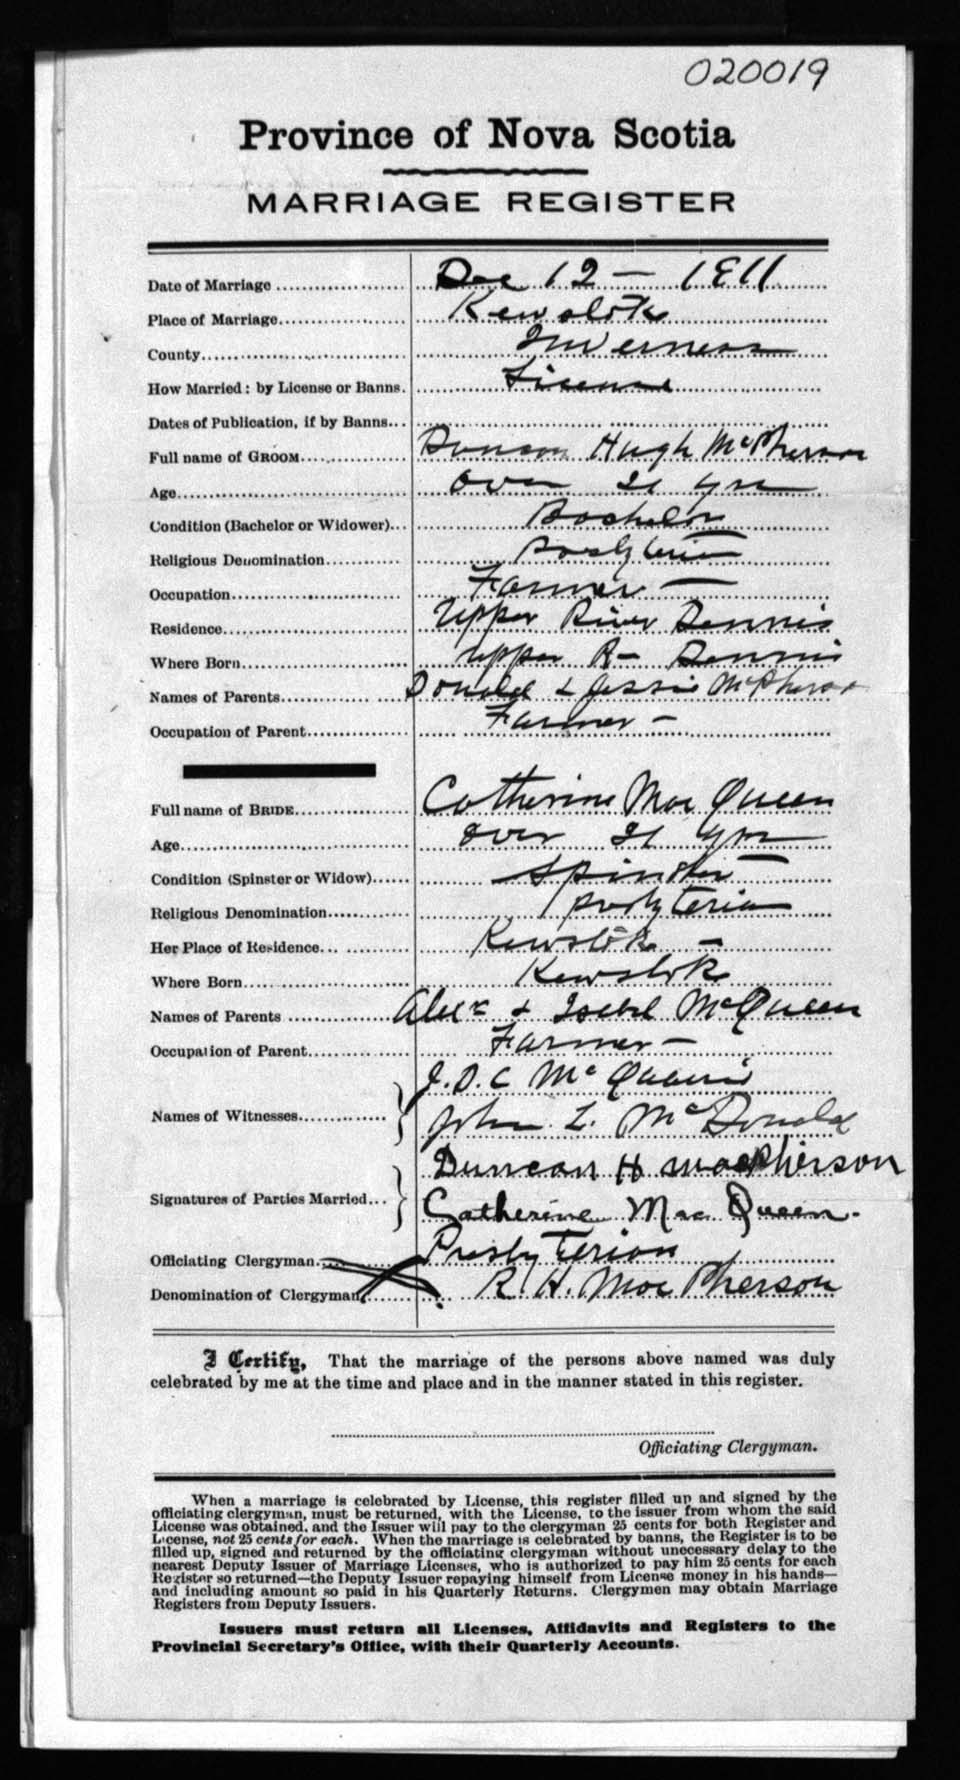 020019
Province of Nova Scotia
MARRIAGE REGISTER
Date of Marriage Dec 12 — 1911
Place of Marriage Kewstoke
County Inverness
How Married: by License or Banns. License
Dates of Publication, if by Banns
Full name of GROOM Duncan Hugh McPherson
Age over 21 yrs
Condition (Bachelor or Widower) Bachelor
Religious Denomination Presbyterian
Occupation Farmer —
Residence Upper River Dennis
Where Born Upper R— Dennis
Names of Parents Donald & Jessie McPherson
Occupation of Parent Farmer —
Full name of BRIDE Catherine Mac Queen
Age over 21 yrs
Condition (Spinster or Widow) Spinster
Religious Denomination presbyterian
Her Place of Residence Kewstoke —
Where Born Kewstoke
Names of Parents Alex & Isabel McQueen
Occupation of Parent Farmer —
Names of Witnesses J. D. C McQueen
John L. McDonald
Signatures of Parties Married Duncan H MacPherson
Catherine Mac Queen.
Officiating Clergyman Presbyterian
Denomination of Clergyman R. H. MacPherson
I Certify, That the marriage of the persons above named was duly
celebrated by me at the time and place and in the manner stated in this register.
Officiating Clergyman.
When a marriage is celebrated by License, this register filled up and signed by the
officiating clergyman, must be returned, with the License, to the issuer from whom the said
License was obtained, and the Issuer will pay to the clergyman 25 cents for both Register and
License, not 25 cents for each. When the marriage is celebrated by banns, the Register is to be
filled up, signed and returned by the officiating clergyman without unecessary delay to the
nearest Deputy Issuer of Marriage Licenses, who is authorized to pay him 25 cents for each
Register so returned—the Deputy Issuer repaying himself from License money in his hands—
and including amount so paid in his Quarterly Returns. Clergymen may obtain Marriage
Registers from Deputy Issuers.
Issuers must return all Licenses, Affidavits and Registers to the
Provincial Secretary's Office, with their Quarterly Accounts.